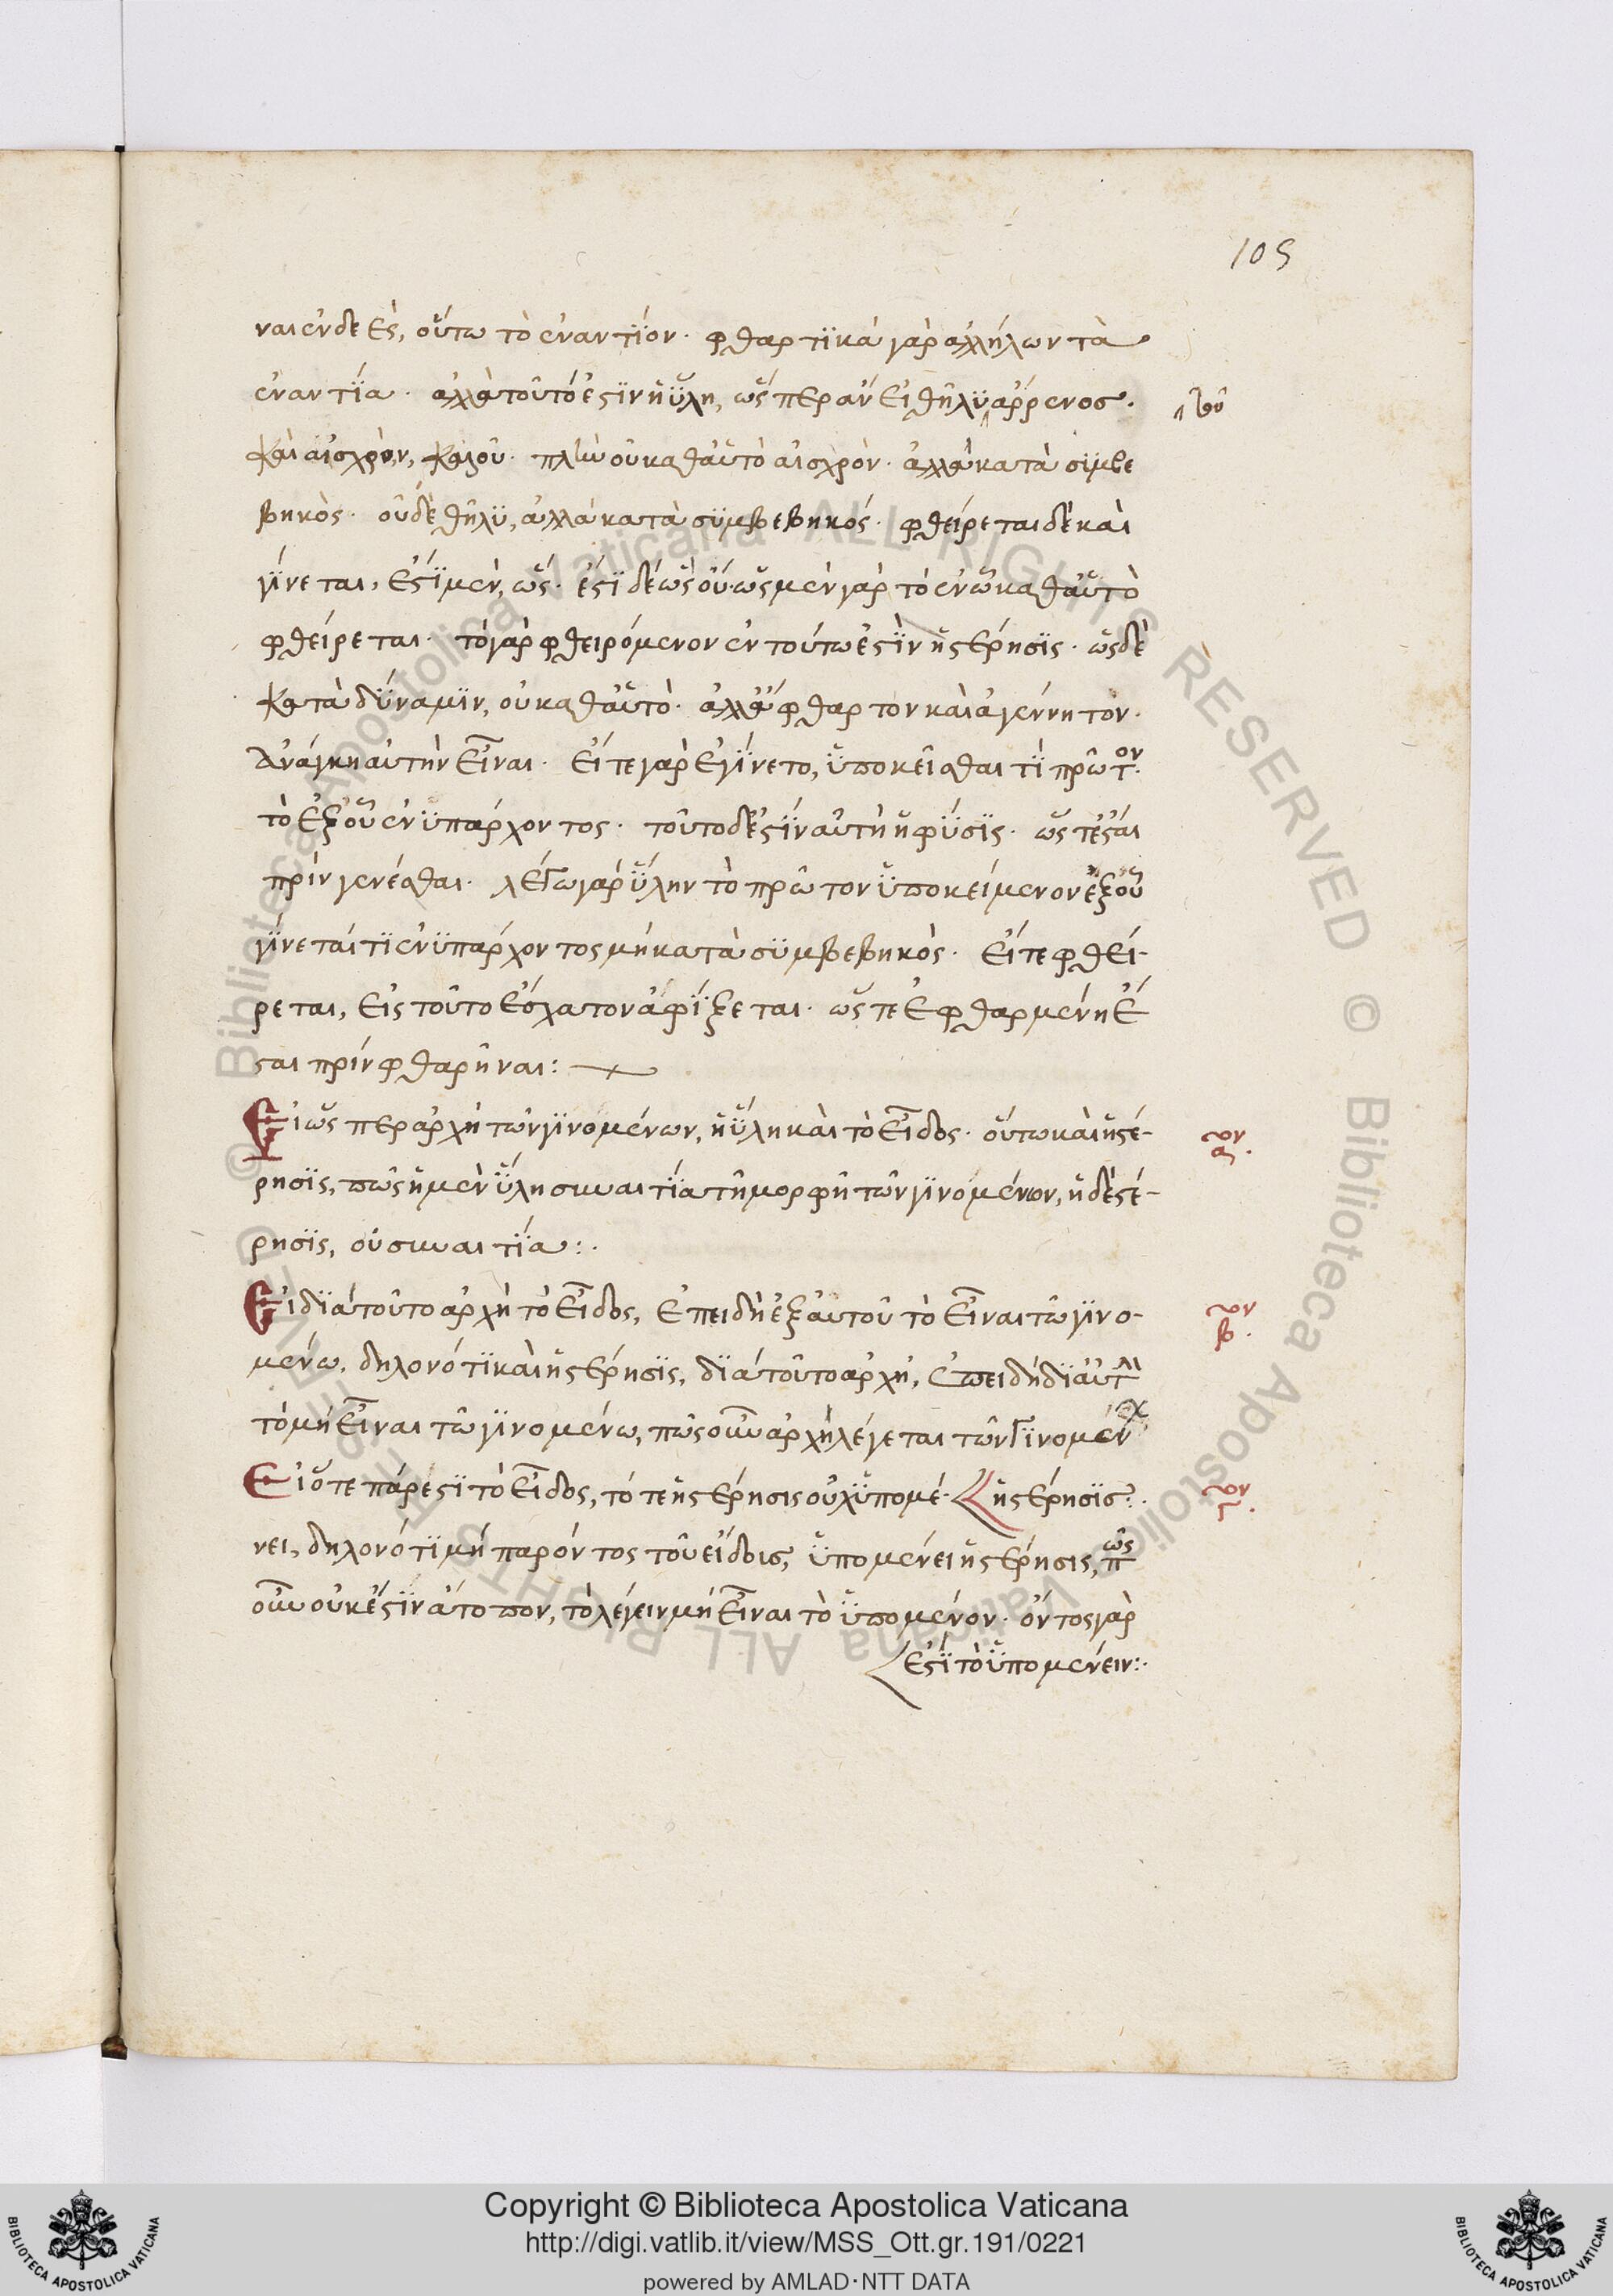 105
ναι ἐνδεὲς, οὕτω τὸ ἐναντίον· φθαρτϊκὰ γὰρ ἀλλήλων τὰ
ἐναντία· ἀλλὰ τοῦτό ἐστϊν ἡ ὕλη, ὥσπερ ἂν εἰ θῆλϋ ἄρρενος·
καὶ αἰσχρὸν, καλοῦ· πλὴν οὐ καθ' αὑτὸ αἰσχρὸν· ἀλλὰ κατὰ σϋμβε
βηκὸς· οὐδὲ θῆλϋ, ἀλλὰ κατὰ σϋμβεβηκός· φθείρεται δὲ καὶ
γίνεται, ἔστϊ μὲν, ὥς· ἔστϊ δὲ ὡς οὔ· ὡς μὲν γὰρ τὸ ἐν ὧ καθ' αὑτὸ
φθείρεται· τὸ γὰρ φθειρόμενον ἐν τούτω ἐστὶν ἡ στέρησϊς· ὡς δὲ
κατὰ δύναμϊν, οὐ καθ' αὑτὸ· ἀλλ' ἄφθαρτον καὶ ἀγέννητον·
ἀνάγκη αὐτὴν εἶναι· εἴτε γὰρ ἐγίνετο, ὑποκεῖσθαι τὶ πρῶτον·
τὸ ἐξ οὗ ἐνϋπάρχοντος· τοῦτο δ' ἐστὶν αὐτὴ ἡ φύσϊς· ὥστ' ἔσται
πρὶν γενέσθαι· λέγω γὰρ ὕλην τὸ πρῶτον ὑποκείμενον ἐξ οὗ
γίνεταί τϊ ἐνϋπάρχοντος μὴ κατὰ σϋμβεβηκὸς· εἴτε φθεί-
ρεται, εἰς τοῦτο ἔσχατον ἀφίξεται· ὥστε ἐφθαρμένη ἔ
σται πρὶν φθαρῆναι:
Εἰ ὥσπερ ἀρχὴ τῶν γϊνομένων, ἡ ὕλη καὶ τὸ εἶδος· οὕτω καὶ ἡ στέ-
ρησϊς, πῶς ἡ μὲν ὕλη συναιτία τῆ μορφῆ τῶν γϊνομένων, ἡ δὲ στέ-
ρησϊς, οὐ συναιτία:·
Εἰ δϊὰ τοῦτο ἀρχὴ τὸ εἶδος, ἐπειδὴ ἐξ αὐτοῦ τὸ εἶναι τῶ γϊνο-
μένω, δηλονότϊ καὶ ἡ στέρησϊς, δϊὰ τοῦτο ἀρχὴ, ἐπειδὴ δϊ' αὐτὴν
τὸ μὴ εἶναι τῶ γϊνομένω, πῶς οὖν ἀρχὴ λέγεται τῶν γϊνομένων
Εἰ ὅτε πάρεστϊ τὸ εἶδος, τότε ἡ στέρησις οὐχ ὑπομέ- ἡ στέρησϊς:·
νει, δηλονότι μὴ παρόντος τοῦ εἴδους, ὑπομένει ἡ στέρησις, πῶς
οὖν οὐκ ἔστϊν ἄτοπον, τὸ λέγειν μὴ εἶναι τὸ ὑπομένον· ὄντος γὰρ
ἐστὶ τὸ ὑπομένειν:·
Copyright © Biblioteca Apostolica Vaticana
http://digi.vatlib.it/view/MSS_Ott.gr.191/0221
powered by AMLAD·NTT DATA